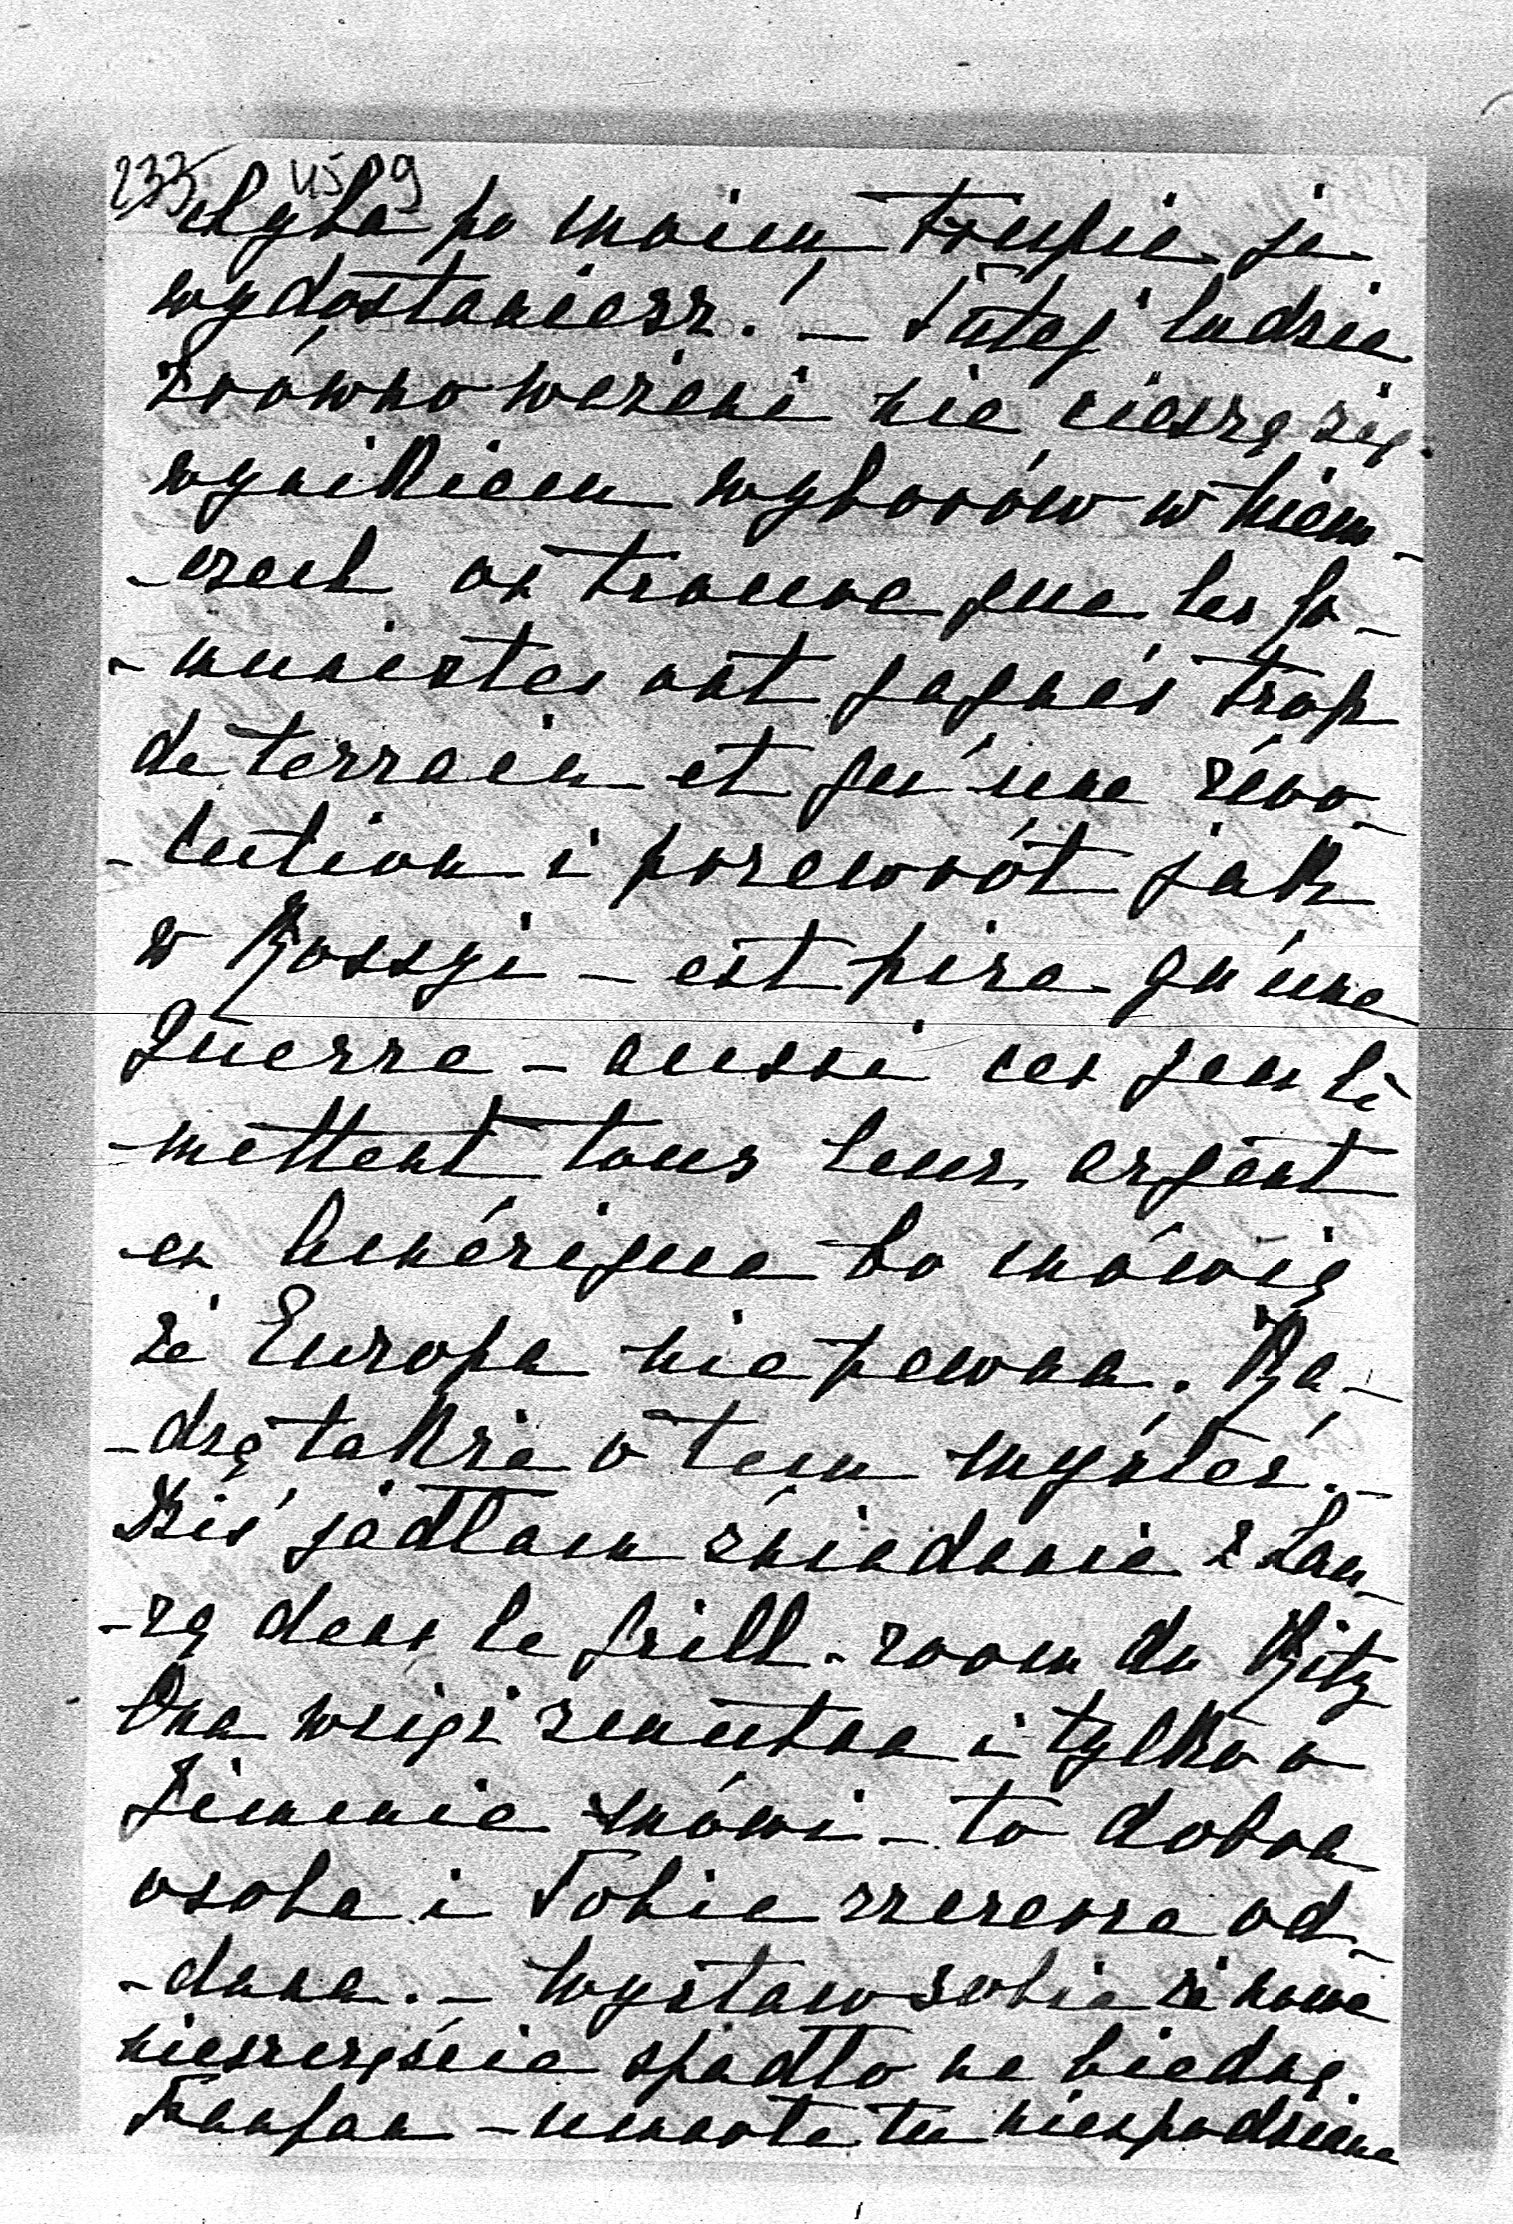 233 4589
chyba po moim trupie je
wydostaniesz! – Tutaj ludzie
zrównoważeni nie cieszą się
wynikiem wyborów w Niem-
-czech on trouve que les ko-
-munistes ont gagnés trop
de terrain et qu'une révo-
-lution i przewrót jak
w Rossyi – est pire qu'une
guerre – aussi ces gens là
mettent tous leur argent
en Amérique bo mówią
że Europa nie pewna. Ra-
-dzę także o tem myśleć. –
Dziś jadłam śniadanie z Lau-
-rą dans le grill-room du Ritz
Ona wciąż smutna i tylko o
Jimmie mówi – to dobra
osoba i Tobie szczerze od-
-dana. – Wystaw sobie że nowe
nieszczęście spadło na biedną
– umarła tu niespodzianie